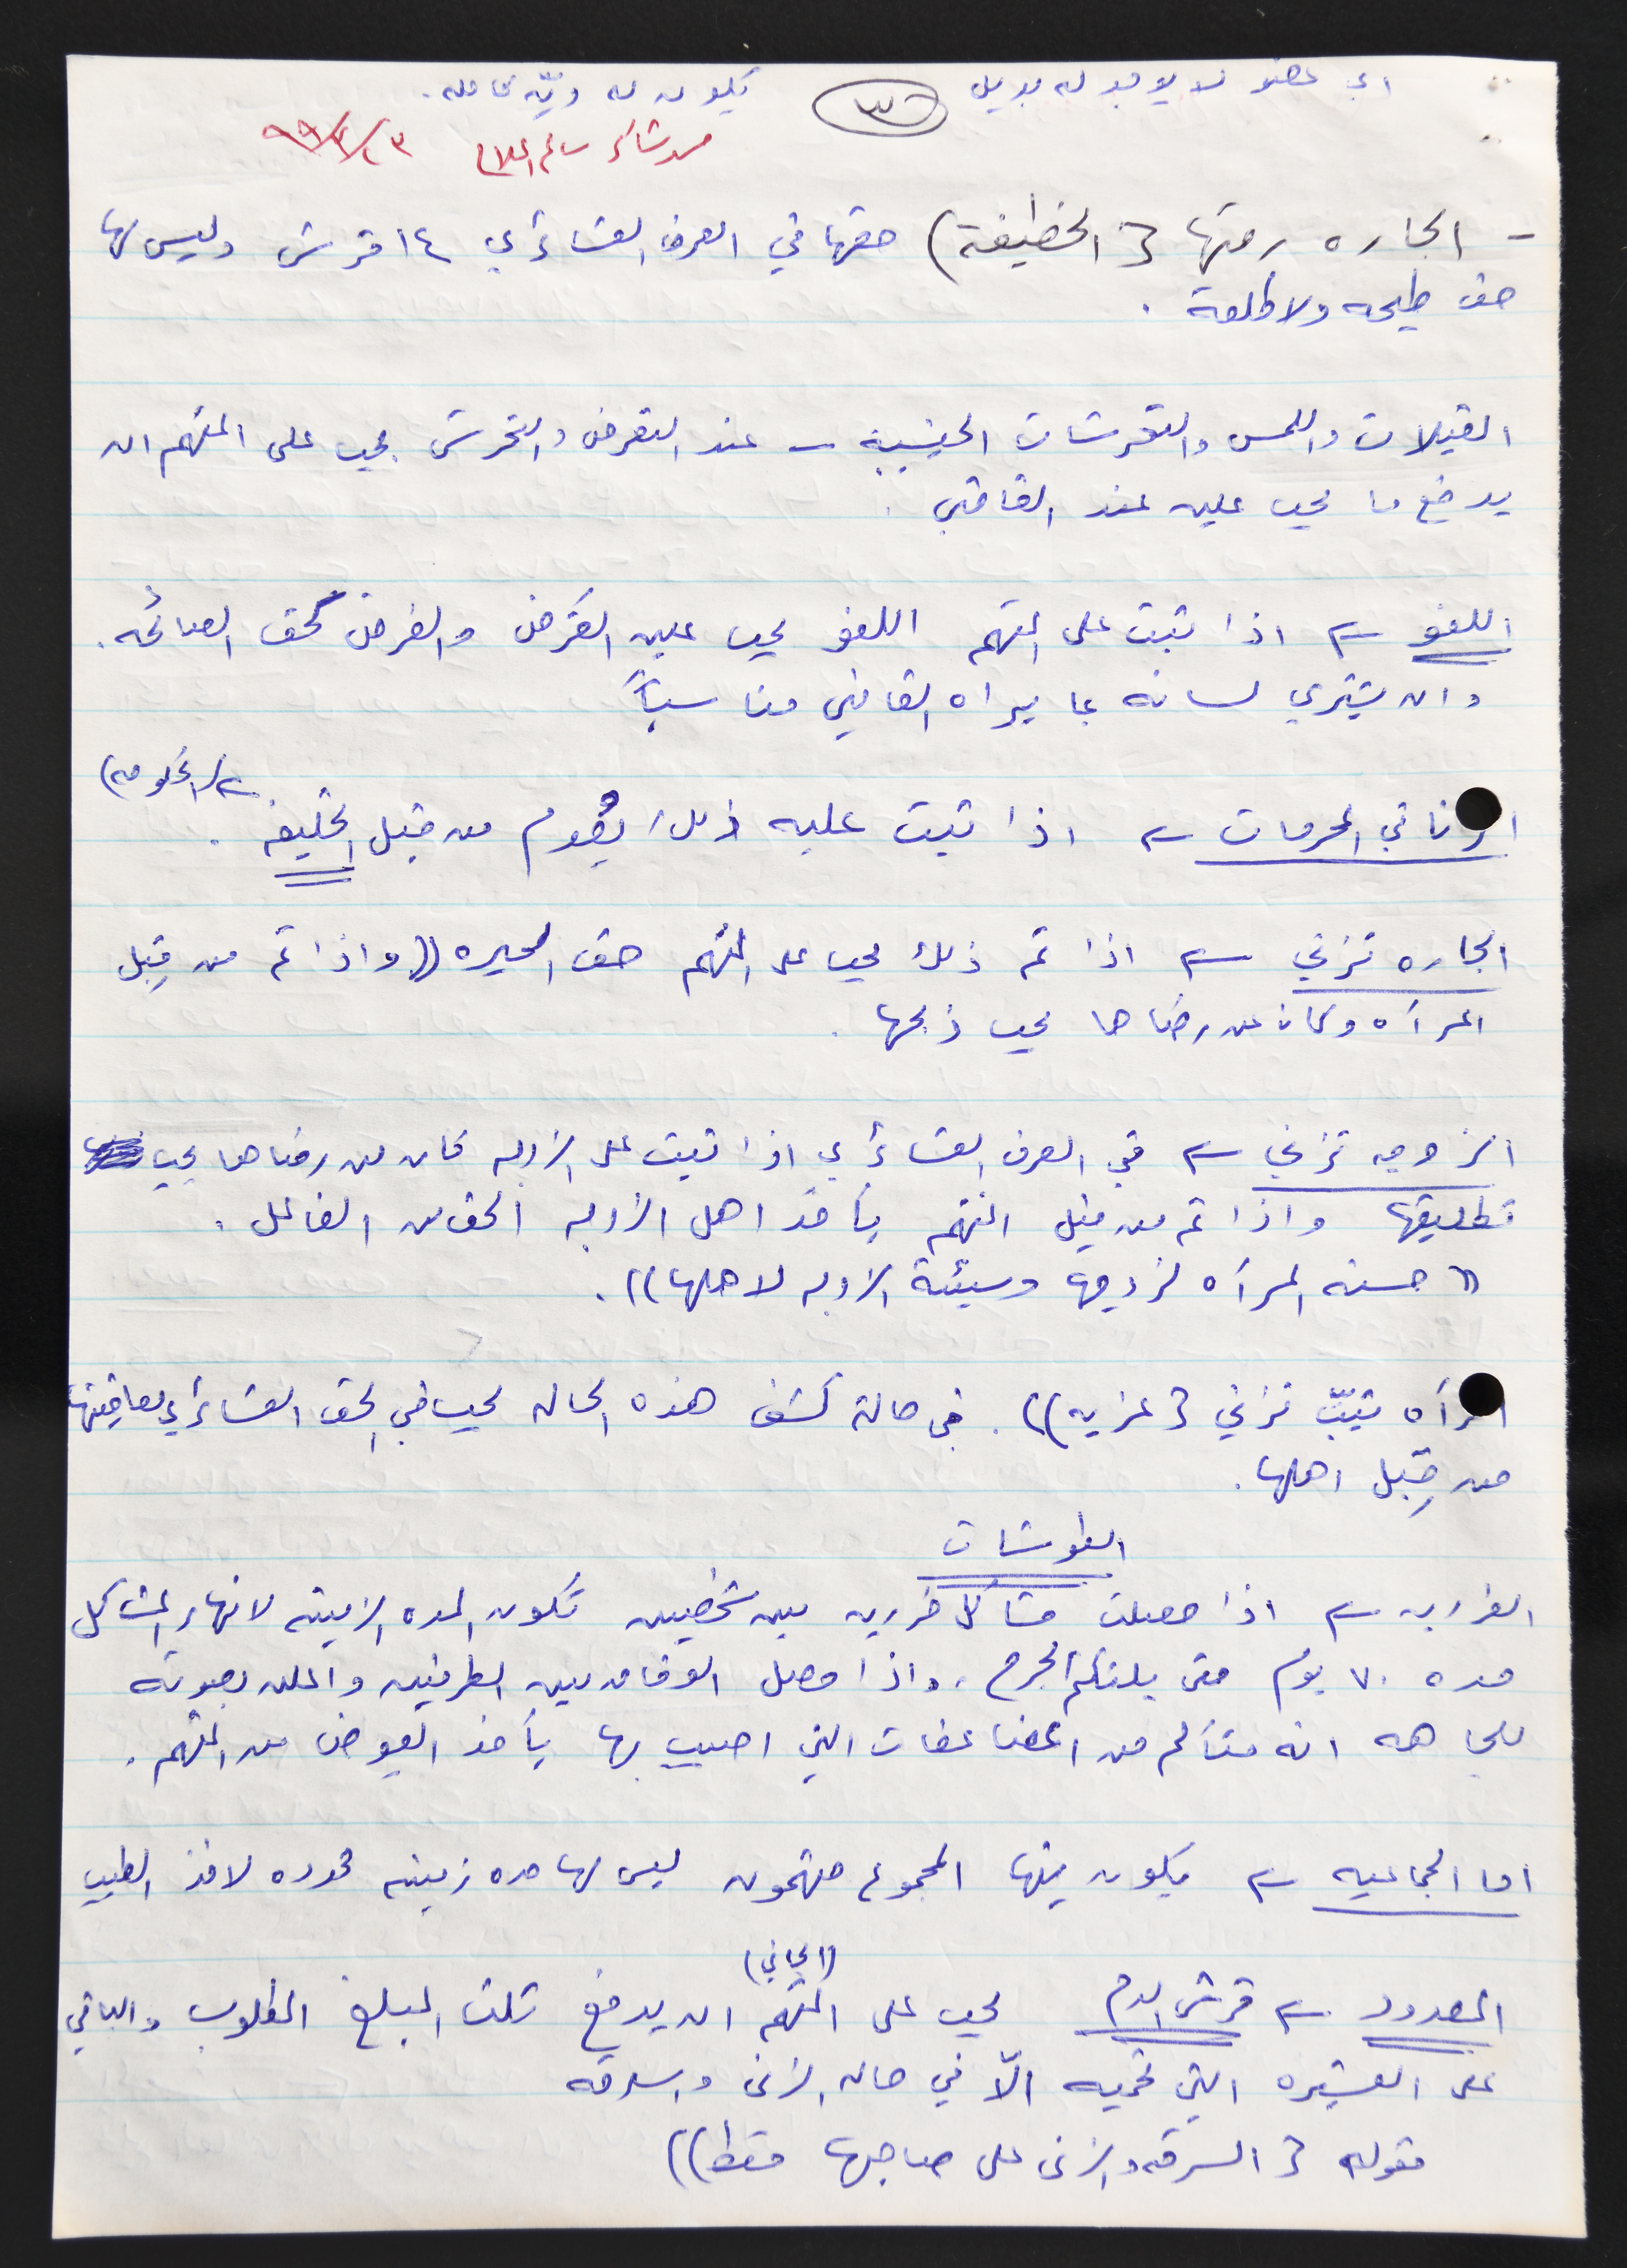 اي عضو لا يوجد له بديل ٣ يكون له ديّه كامله.
- الجاره رمتها {الخطيفة) حقها في العرف العشائري ١٤ قرش وليس لها
حق طيحه ولا طلعة.
القبلات واللمس والتحرشات الجنسية - عند التعرض والتحرش يجب على المتهم ان
يدفع ما يجب عليه عند القاضي.
اللغو اذا ثبت على المتهم اللغو يجب عليه الفرض والفرض كحق الصائحه.
وان يشتري لسانه بما يراه القاضي مناسباً
الزنا في المحرمات اذا ثبت عليه ذلك يقوم من قبل الخليفه. (الحكومه)
الجاره تزني اذا تم ذلك يجب على المتهم حق الجيره ((واذا تم من قِبل
المرآه وكان عن رضاها يجب ذبحها.
الزوجه تزني في العرف العشائري اذا ثبت على الزوجه كان من رضاها يجب
تطليقها واذا تم من قبل المتهم يأخذ اهل الزوجه الحق من الفاعل.
((حسنه المرآه لزوجها وسيئة الزوجه لاهلها)).
امرآه ثيّب تزني {عزبه)). في حالة كشف هذه الحاله يجب في الحق العشائري معاقبتها
من قِبل اهلها.
الطوشات
الفرديه اذا حصلت مشاكل فرديه بين شخصين تكون المده الزمنيه لانهاء المشاكل
مده ٧٠ يوم حتى يلتئم الجرح. واذا حصل الوفا من بين الطرفين واعلن بصوته
للجاهه انه متألم من المضاعفات التي اصيب بها يأخذ العوض من المتهم.
اما الجماعيه يكون فيها المجموع متهمون ليس لها مده زمنيه محدوده لاخذ الطيب
المعدود قرش الدم يجب على المتهم (الجاني) ان يدفع ثلث المبلغ المطلوب والباقي
على العشيره التي تحميه الاّ في حاله الزنى والسرقه
مقوله {السرقه والزنى على صاحبها فقط))